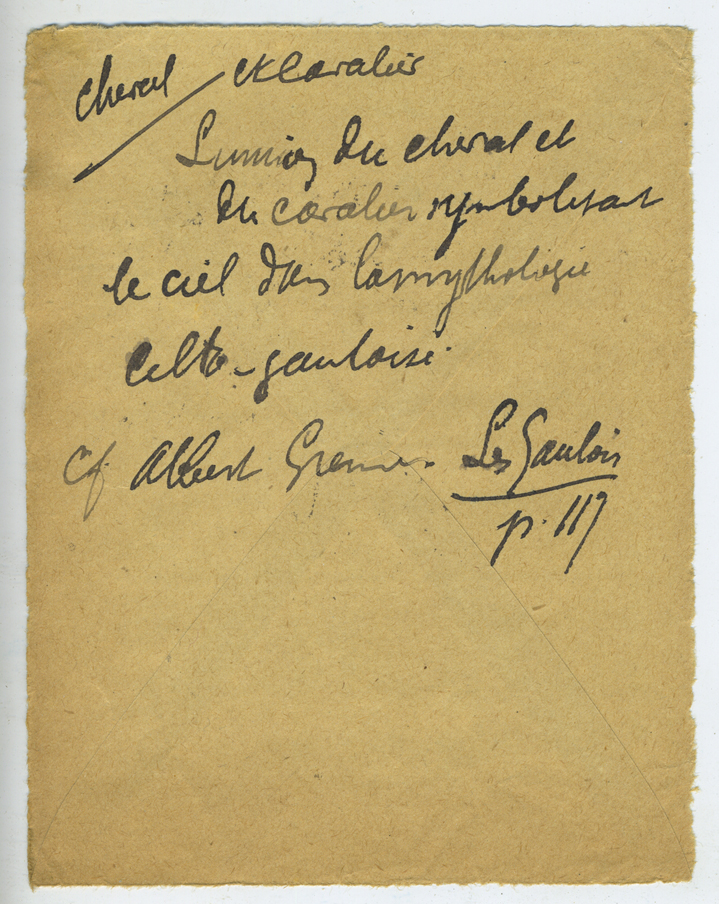 cheval et Cavalier
du cheval et
du cavalier symbolisant
le ciel dans la mythologie
Celto-gauloise.
cf Albert Grenier. Les Gaulois
p. 117